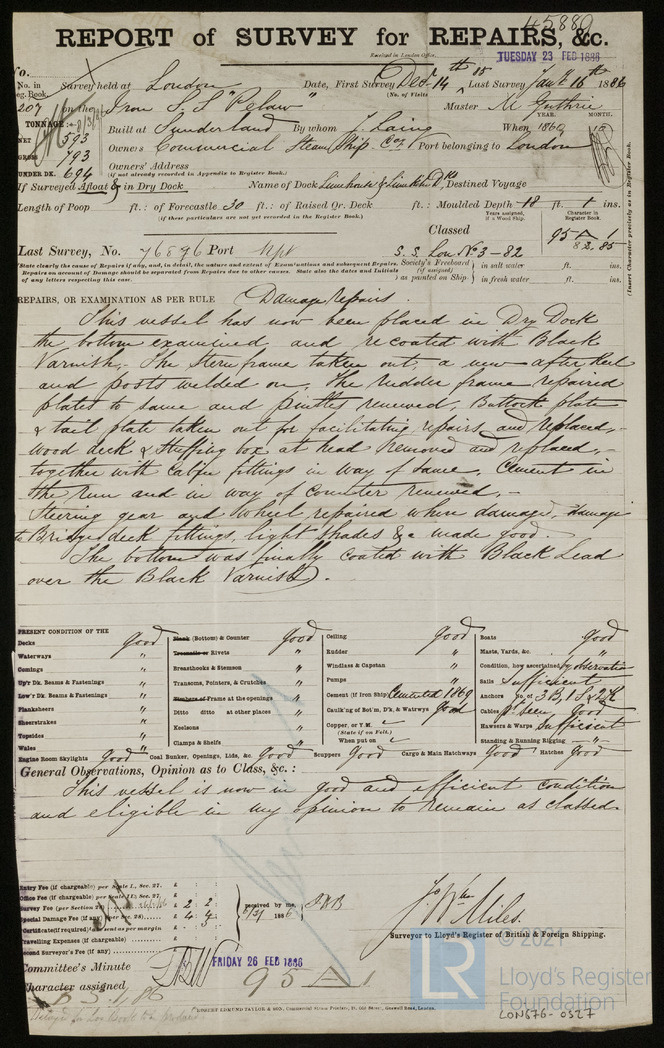 45880
REPORT of SURVEY for REPAIRS, &c.
Received in London Office,
TUESDAY 23 FEB 1886
No.
No. in Reg. Book.
Survey held at London Date, First Survey Decr 14th 85 Last Survey Jany 16th 1886
(No. of Visits)
207 on the Iron S.S "Pelaw" Master M Guthrie
TONNAGE:-
YEAR. MONTH.
Built at Sunderland By whom J. Laing When 1860 10
NET 593
GROSS 793
Owners Commercial Steam Ship Coy Port belonging to London
UNDER DK. 694
Owners' Address
(if not already recorded in Appendix to Register Book.)
If Surveyed Afloat & in Dry Dock Name of Dock Limehouse & Destined Voyage
Length of Poop ft.: of Forecastle 30 ft.: of Raised Qr. Deck ft.: Moulded Depth 18 ft. 1 ins.
(if these particulars are not yet recorded in the Register Book.)
Years assigned, if a Wood Ship.
Character in Register Book.
(Insert Character precisely as in Register Book.)
Classed
95 A 1
8 2, 85
Last Survey, No. 76896 Port Npt S.S. Lon No 3-82
State clearly the cause of Repairs if any, and, in detail, the nature and extent of Examinations and subsequent Repairs.
Repairs on account of Damage should be separated from Repairs due to other causes. State also the dates and Initials
of any letters respecting this case.
Society's Freeboard (if assigned) as painted on Ship:
in salt water ft. ins.
in fresh water ft. ins.
REPAIRS, OR EXAMINATION AS PER RULE Damage repairs.
This vessel has now been placed in Dry Dock
the bottom examined and recoated with Black
Varnish,- The stern frame taken out, a new after keel
and posts welded on, The rudder frame repaired
plates to same and pintles renewed, Buttock plate
& tail plate taken out for facilitating repairs and replaced,-
wood deck & stuffing box at head removed and replaced,-
together with Cabin fittings in way of same, Cement in
the run and in way of counter renewed,-
Steering gear and wheel repaired when damaged, damage
to Bridge deck fittings, light shades &c made good.
The bottom was finally coated with Black Lead
over the Black Varnish.
PRESENT CONDITION OF THE
Decks Good
Waterways "
Comings "
Up'r Dk. Beams & Fastenings "
Low'r Dk. Beams & Fastenings "
Planksheers "
Sheerstrakes "
Topsides "
Wales "
Engine Room Skylights Good
Plank (Bottom) & Counter Good
Treenails or Rivets "
Breasthooks & Stemson "
Transoms, Pointers, & Crutches "
Timbers of Frame at the openings "
Ditto ditto at other places "
Keelsons "
Clamps & Shelfs "
Coal Bunker, Openings, Lids, &c. Good
Ceiling Good
Rudder "
Windlass & Capstan "
Pumps "
Cement (if Iron Ship) Cemented 1869
Caulk'ng of Bot'm, D'ks, & Watrwys Good
Copper, or Y.M.
(State if on Felt.)
When put on
Scuppers Good Cargo & Main Hatchways Good
Boats Good
Masts, Yards, &c. "
Condition, how ascertained by observation
Sails Sufficient
Anchors No. of 3 B, 1 S & 2 K
Cables pt seen Good
Hawsers & Warps Sufficient
Standing & Running Rigging "
Hatches Good
General Observations, Opinion as to Class, &c.:
This vessel is now in good and efficient condition
and eligible in my opinion to remain as classed.
Entry Fee (if chargeable) per Scale I., Sec. 27. £
Office Fee (if chargeable) per Scale II., Sec. 27. £
Survey Fee (per Section 28) £ 2 2
Special Damage Fee (if any) (per Sec. 28) £ 4 4
Certificate (if required) to be sent as per margin
Travelling Expenses (if chargeable) £
Second Surveyor's Fee (if any) £
received by me,
1886
Jo Wm Miles.
Surveyor to Lloyd's Register of British & Foreign Shipping.
Committee's Minute FRIDAY 26 FEB 1886
Character assigned 95 A 1
ROBERT EDMUND TAYLOR & SON, Commercial Steam Printers, 19, Old Street, Goswell Road, London.
© 2021
LR
Lloyd's Register
Foundation
LON576-0527